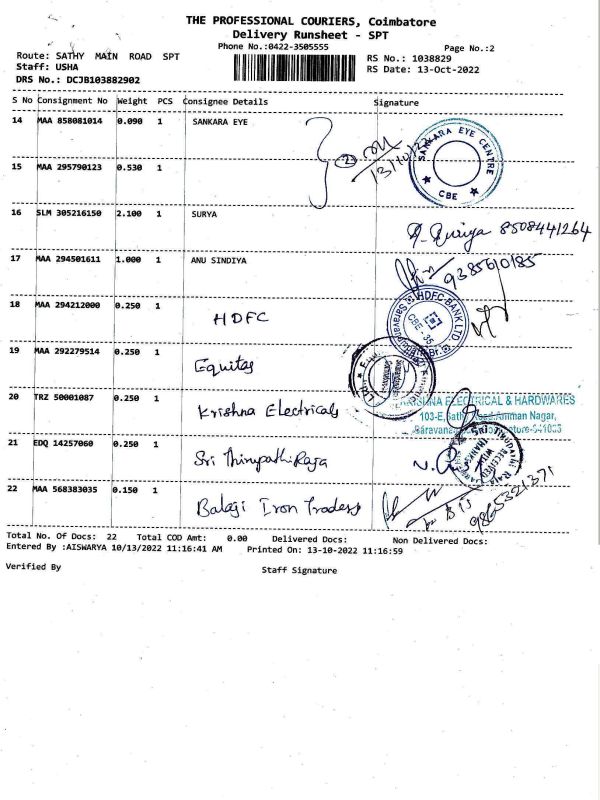 THE PROFESSIONAL COURIERS, Coimbatore
Delivery Runsheet - SPT
Phone No.:0422-3505555
Page No.:2
Route: SATHY MAIN ROAD SPT
RS No.: 1038829
Staff: USHA
RS Date: 13-Oct-2022
DRS No.: DCJB103882902
S No Consignment No Weight PCS Consignee Details Signature
14 MAA 858081014 0.090 1 SANKARA EYE
2
13/10/22
SANKARA EYE CENTRE
CBE
15 MAA 295790123 0.530 1
16 SLM 305216150 2.100 1 SURYA
8508441264
17 MAA 294501611 1.000 1 ANU SINDIYA
9385610185
18 MAA 294212000 0.250 1 HDFC
HDFC BANK LTD
CBE 35
19 MAA 292279514 0.250 1 Equitas
20 TRZ 50001087 0.250 1 Krishna Electricals
KRISHNA ELECTRICAL & HARDWARES
103-E, Road, Amman Nagar,
21 EDQ 14257060 0.250 1 Sri Thirupathi Raja
RECEIVED
WITH
THANKS
22 MAA 568383035 0.150 1 Balaji Iron Traders
9865321371
Total No. Of Docs: 22 Total COD Amt: 0.00 Delivered Docs: Non Delivered Docs:
Entered By :AISWARYA 10/13/2022 11:16:41 AM Printed On: 13-10-2022 11:16:59
Verified By Staff Signature